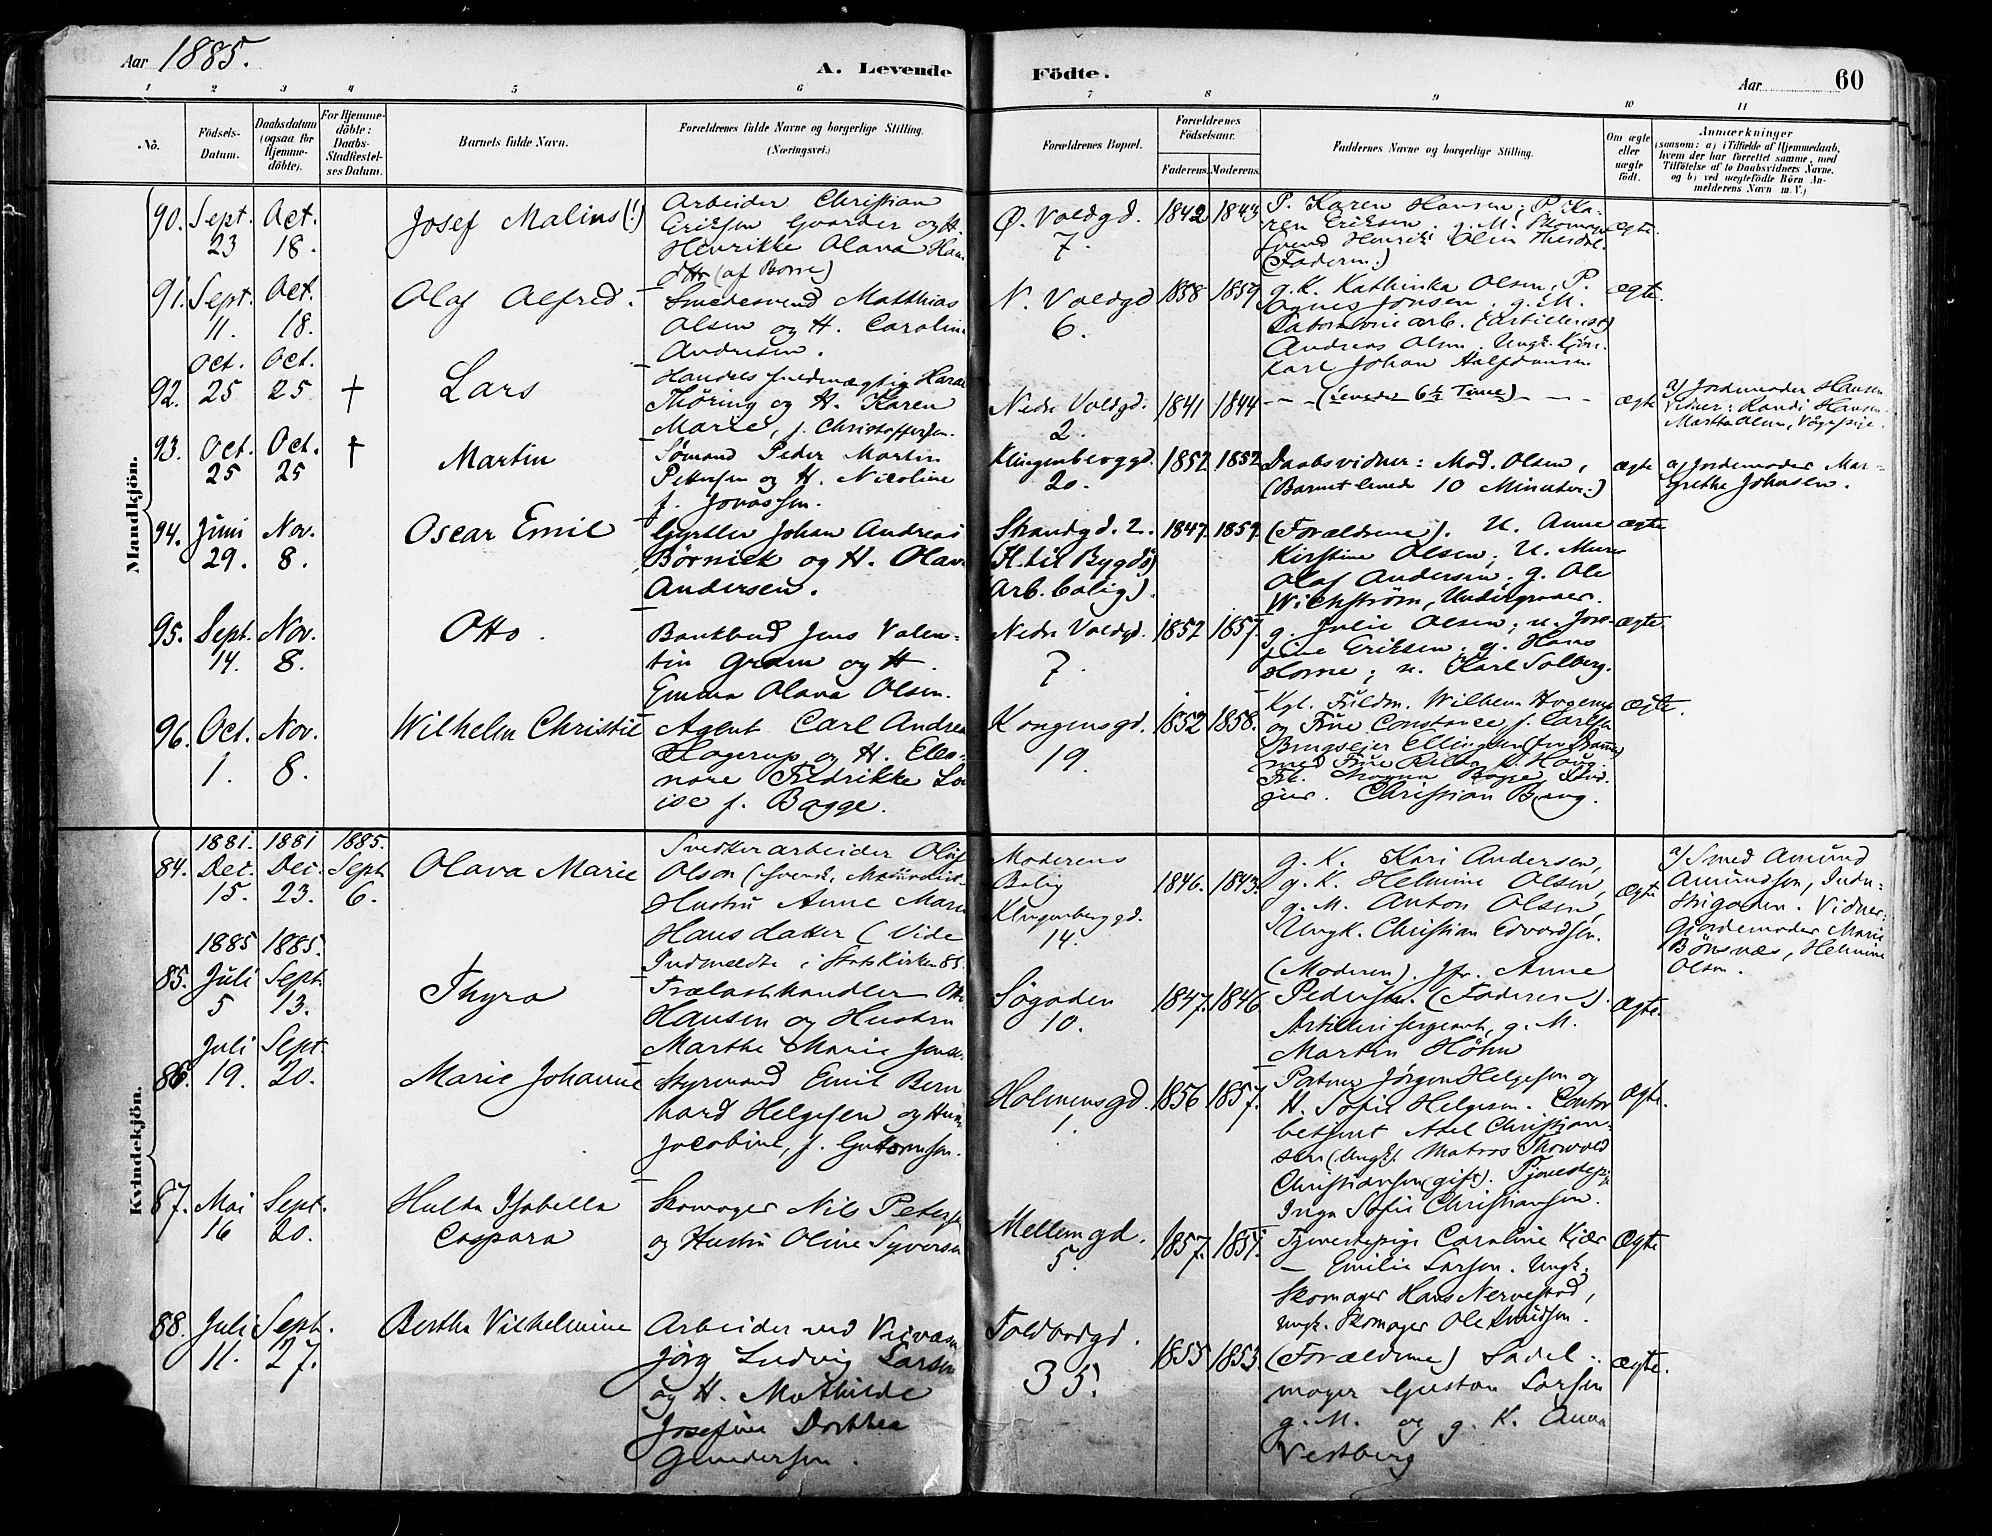 Aar 1885.
A. Levende
Födte.
Aar
60
1 2 3 4 5 6 7 8 9 10 11
No.
Födsels-
Datum.
Daabsdatum
(ogsaa for
Hjemme-
döbte).
For Hjemme-
döbte:
Daabs-
Stadfæstel-
ses Datum.
Barnets fulde Navn.
Forældrenes fulde Navne og borgerlige Stilling.
(Næringsvei.)
Forældrenes Bopæl.
Forældrenes
Födselsaar.
Faderens.
Moderens.
Faddernes Navne og borgerlige Stilling.
Om ægte
eller
uægte
født.
Anmærkninger
(saasom: a) i Tilfælde af Hjemmedaab,
hvem der har forrettet samme, med
Tilföielse af to Daabsvidners Navne.
og b) ved uægtefödte Börn An-
melderens Navn m. V.)
Mandkjön.
90. Sept. 23
Oct. 18.
Josef Malins (!)
Arbeider Christian
Eriksen og H.
Henrikke Olava
(af Borre)
Ø. Voldgd.
7.
1842 1843
P. Karen Hansen; P. Ka-
ren Eriksen. g. M.
svend Henrik Olsen
(Faderen.)
ægte.
91. Sept. 11.
Oct. 18.
Olaf Alfred.
Smedesvend Matthias
Olsen og H. Caroline
Andresen.
N. Voldgd
6.
1858 1859
g. K. Kathinka Olsen, P.
Agnes Jonsen. g. M.
Laboratoriearb. (Artillerist)
Andreas Olsen. Ungk.
Karl Johan
ægte.
92. Oct. 25
Oct. 25
†
Lars
Handelsfuldmægtig Harald
Thøring og H. Karen
Marie, f. Christoffersen.
Nedre Voldgd.
2.
1841 1844
- - (levede 6½ Time) - - -
ægte
a) Jordemoder Hansen
Vidner: Randi Hansen
Martha Olsen, Vågepige.
93. Oct. 25
Oct. 25
†
Martin
Sømand Peder Martin
Pettersen og H. Nicoline
f. Jonassen.
Klingenberggd.
20.
1852 1852
Daabsvidner: Mad. Olsen,
(Barnet levede 10 Minuter.)
ægte
a) Jordemoder Mar-
grethe Johnsen.
94. Juni 29.
Nov. 8.
Oscar Emil
Gyrtler Johan Andreas
Børnick og H. Olava
Andersen.
Strandgd. 2.
(H. til Bygdö
Arb. bolig).
1847. 1859.
(Forældrene). U. Anne
Kirstine Olsen; U. Murer
Olaf Andersen; g. Ole
Wickström, Undergraver.
ægte
95. Sept. 14.
Nov. 8.
Otto.
Bankbud Jens Valen-
tin Gram og H.
Emma Olava Olsen.
Nedre Voldgd.
7
1852 1857.
g. Julie Olsen; u. Jose-
fine Eriksen; g. Hans
Horne; u. Karl Solberg.
ægte.
96. Oct. 1.
Nov. 8.
Wilhelm Christie
Agent Carl Andreas
Hagerup og H. Eleo-
nore Fredrikke Lo-
ise f. Bagge.
Kongensgd.
19.
1852 1858.
Kgl. Fuldm. Wilhelm Hagerup
og Frue Constance f. Carlsen
Brugseier Ellingsen
med Frue Hilda f. Houg.
Frk. Magna Bagge, Stud.
jur. Christian Bang.
ægte.
Kvindekjön.
84. 1881. Dec. 15.
1881 Dec. 23.
1885. Sept 6.
Olava Marie
arbeider Oluf
Olson (svensk,
Hustru Anne Marie
Hansdatter (Vide
Indmeldte i Statskirken 85.
Moderens
Bolig
Klingenberggd.
14.
1846. 1843.
g. K. Kari Andersen,
g. K. Helmine Olsen,
g. M. Anton Olsen,
Ungk. Christian Edvardsen.
ægte
a) Smed Amund
Amundsen, Indu-
strigaden. Vidner:
Gjordemoder Marie
Bönsnæs, Helmine
Olsen.
85. 1885 Juli 5
1885. Sept. 13.
Thyra
Trælasthandler
Hansen og Hustru
Marthe Marie
Søgaden
10.
1847. 1846
(Moderen). Jfr. Anne
Pedersen. (Faderen).
Artilleri sergeant, g. M.
Martin Höhn
Ægte.
86. Juli 19.
Sept. 20.
Marie Johanne
Styrmand Emil Bern-
hard Helgesen og Hustru
Jacobine, f. Guttormsen.
Holmensgd.
1.
1856 1857.
Jörgen Helgesen og
H. Sofie Helgesen. Contor-
betjent Axel Christian-
sen (Ungk). Matros Thorvald
Christiansen (gift). Tjenestepige
Inga Sofie Christiansen.
Ægte.
87. Mai 16
Sept. 20.
Hulda Isabella
Caspara
Skomager Nils Petersen
og Hustru Oline Syversen
Mellemgd.
5.
1857. 1857.
Tjenestepige Caroline Kjær
— Emilie Larsen. Ungk.
Skomager Hans
Ungk. Skomager Ole Knudsen.
Ægte
88. Juli 11.
Sept. 27.
Bertha Vilhelmine
Arbeider ved
Jörg Ludvig Larsen
og H. Mathilde
Josefine Dorthea
Gundersen.
Toldbodgd.
35.
1853 1853
(Forældrene) Sadel-
mager Gustav Larsen
g. M. og g. K. Anna
Vestberg
ægte.